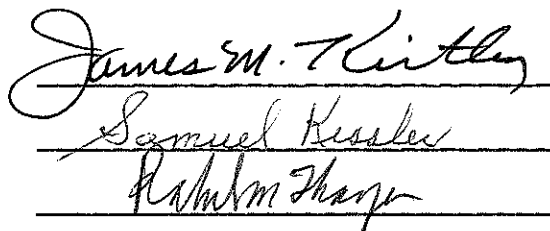 James M. Kirtley
Samuel Kessler
M Thayer